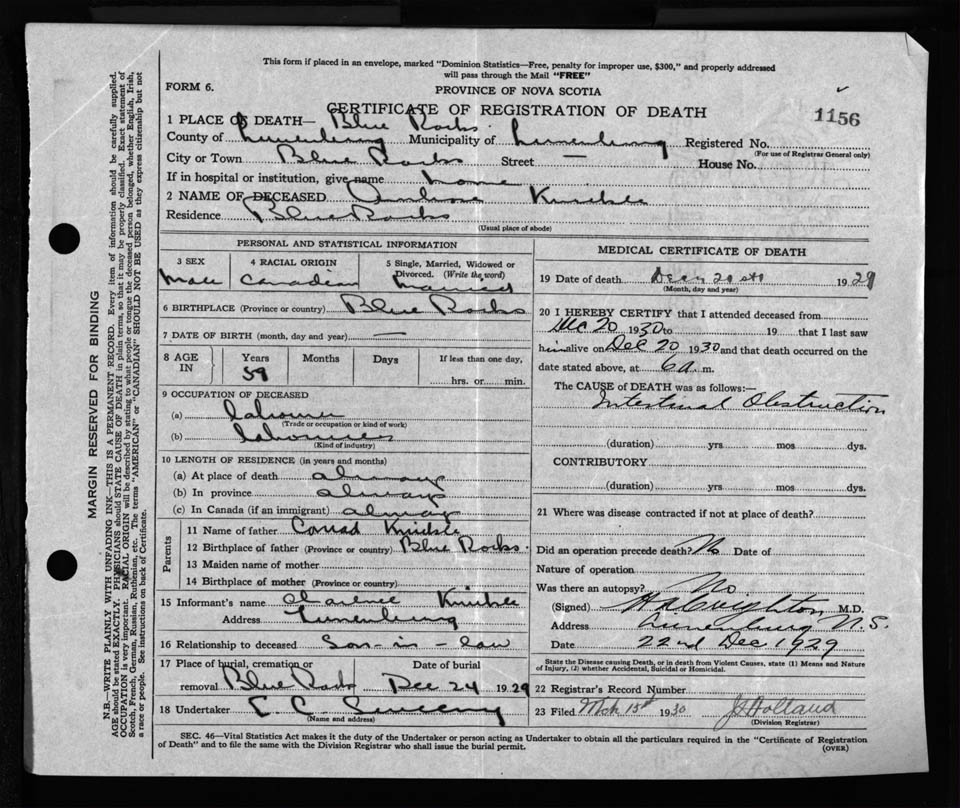 This form if placed in an envelope, marked "Dominion Statistics—Free, penalty for improper use, $300," and properly addressed
will pass through the Mail "FREE"
FORM 6.
PROVINCE OF NOVA SCOTIA
CERTIFICATE OF REGISTRATION OF DEATH
1156
1 PLACE OF DEATH— Blue Rocks
County of Lunenburg Municipality of Lunenburg Registered No.
(For use of Registrar General only)
City or Town Blue Rocks Street — House No.
If in hospital or institution, give name
2 NAME OF DECEASED Ambrose Knickle
Residence Blue Rocks
(Usual place of abode)
PERSONAL AND STATISTICAL INFORMATION
3 SEX 4 RACIAL ORIGIN 5 Single, Married, Widowed or
Divorced. (Write the word)
Male Canadian Married
6 BIRTHPLACE (Province or country) Blue Rocks
7 DATE OF BIRTH (month, day and year) —
8 AGE IN Years Months Days If less than one day,
59 hrs. or min.
9 OCCUPATION OF DECEASED
(a) labourer
(Trade or occupation or kind of work)
(b)
(Kind of industry)
10 LENGTH OF RESIDENCE (in years and months)
(a) At place of death always
(b) In province always
(c) In Canada (if an immigrant) always
Parents
11 Name of father Conrad Knickle
12 Birthplace of father (Province or country) Blue Rocks.
13 Maiden name of mother
14 Birthplace of mother (Province or country)
15 Informant's name Clarence Knickle
Address Lunenburg
16 Relationship to deceased Son-in-law
17 Place of burial, cremation or Date of burial
removal Blue Rocks Dec 24 1929
18 Undertaker
(Name and address)
MEDICAL CERTIFICATE OF DEATH
19 Date of death Dec 20th 1929
(Month, day and year)
20 I HEREBY CERTIFY that I attended deceased from
Dec 20 1930 to 19 that I last saw
him alive on Dec 20 1930 and that death occurred on the
date stated above, at 6 a. m.
The CAUSE of DEATH was as follows:
Intestinal Obstruction
(duration) yrs mos dys.
CONTRIBUTORY
(duration) yrs mos dys.
21 Where was disease contracted if not at place of death?
Did an operation precede death? No Date of
Nature of operation
Was there an autopsy? No
(Signed) H A Creighton M.D.
Address Lunenburg N.S.
Date 22nd Dec 1929
State the Disease causing Death, or in death from Violent Causes, state (1) Means and Nature
of Injury, (2) whether Accidental, Suicidal or Homicidal.
22 Registrar's Record Number
23 Filed Mch 15th 1930 J Holland
(Division Registrar)
SEC. 46—Vital Statistics Act makes it the duty of the Undertaker or person acting as Undertaker to obtain all the particulars required in the "Certificate of Registration
of Death" and to file the same with the Division Registrar who shall issue the burial permit.
(OVER)
MARGIN RESERVED FOR BINDING
N.B.—WRITE PLAINLY WITH UNFADING INK—THIS IS A PERMANENT RECORD. Every item of information should be carefully supplied.
AGE should be stated EXACTLY. PHYSICIANS should STATE CAUSE OF DEATH in plain terms, so that it may be properly classified. Exact statement of
OCCUPATION is very important. RACIAL ORIGIN will be described by stating to what people or tongue the deceased person belonged, whether English, Irish,
Scotch, French, German, Russian, Ruthenian, etc. The terms "AMERICAN" or "CANADIAN" SHOULD NOT BE USED as they express citizenship but not
a race or people. See instructions on back of Certificate.